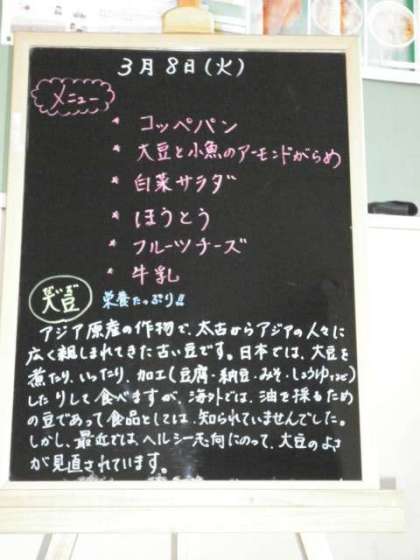 3月8日(火)
メニュー
* コッペパン
* 大豆と小魚のアーモンドがらめ
* 白菜サラダ
* ほうとう
* フルーツチーズ
* 牛乳
大豆 栄養たっぷり!!
アジア原産の作物で、太古からアジアの人々に
広く親しまれてきた古い豆です。日本では、大豆を
煮たり、いったり、加工(豆腐・納豆・みそ・しょうゆなど)
したりして食べますが、海外では、油を採るため
の豆であって食品としては、知られていませんでした。
しかし、最近では、ヘルシー志向にのって、大豆のよさ
が見直されています。